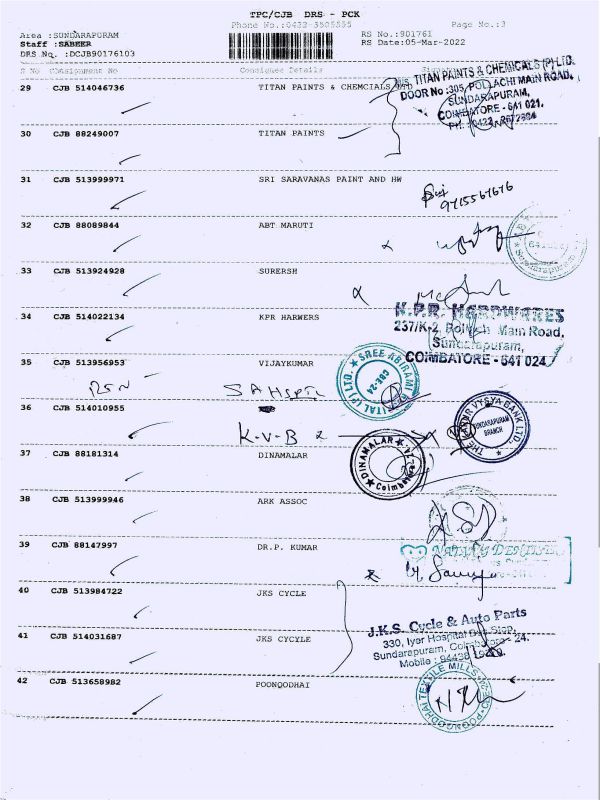 TPC/CJB DRS - PCK
Phone No.:0422-3505555
Page No.:3
Area :SUNDARAPURAM
Staff :SABEER
DRS No. :DCJB90176103
RS No.:901761
RS Date:05-Mar-2022
S No Consignment No Consignee Details
29 CJB 514046736 TITAN PAINTS & CHEMCIALS LTD
M/s. TITAN PAINTS & CHEMICALS (P) LTD.
DOOR No :305, POLLACHI MAIN ROAD,
SUNDARAPURAM,
COIMBATORE - 641 021.
PH: 0422-2672594
30 CJB 88249007 TITAN PAINTS
31 CJB 513999971 SRI SARAVANAS PAINT AND HW
9715567676
32 CJB 88089844 ABT MARUTI
Sundarapuram
33 CJB 513924928 SURERSH
34 CJB 514022134 KPR HARWERS
K.P.R. HARDWARES
237/K-2, Pollachi Main Road,
Sundarapuram,
COIMBATORE - 641 024
35 CJB 513956953 VIJAYKUMAR
SREE ABIRAMI HOSPITAL (P) LTD.
CBE-24
36 CJB 514010955
K-V-B
THE KARUR VYSYA BANK LTD.
SUNDARAPURAM
BRANCH
37 CJB 88181314 DINAMALAR
DINAMALAR
Coimbatore
38 CJB 513999946 ARK ASSOC
39 CJB 88147997 DR.P. KUMAR
40 CJB 513984722 JKS CYCLE
41 CJB 514031687 JKS CYCYLE
J.K.S. Cycle & Auto Parts
330, Iyer Hospital Bus Stop,
Sundarapuram, Coimbatore - 24.
Mobile : 94438
42 CJB 513658982 POONQODHAI
POONGODHAI TEXTILE MILLS